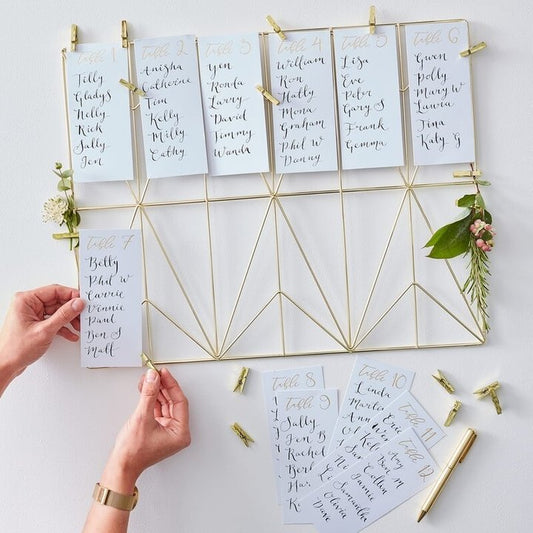 Table 1
Tilly
Gladys
Nelly
Rick
Sally
Jen
Table 2
Anisha
Catherine
Tim
Kelly
Milly
Cathy
Table 3
Yen
Ronda
Larry
David
Timmy
Wanda
Table 4
William
Ron
Holly
Mona
Graham
Phil W
Danny
Table 5
Lisa
Eve
Peter
Gary S
Frank
Gemma
Table 6
Gwen
Polly
Mary W
Laura
Tina
Katy G
Table 7
Betty
Phil W
Carrie
Vinnie
Paul
Ben S
Matt
Table 8
Table 9
Sally
Jen B
Rachel
Table 10
Linda
Maria
Eric
Table 11
Ben M
Collin
Table 12
Jamie
Samantha
Olivia
Dave